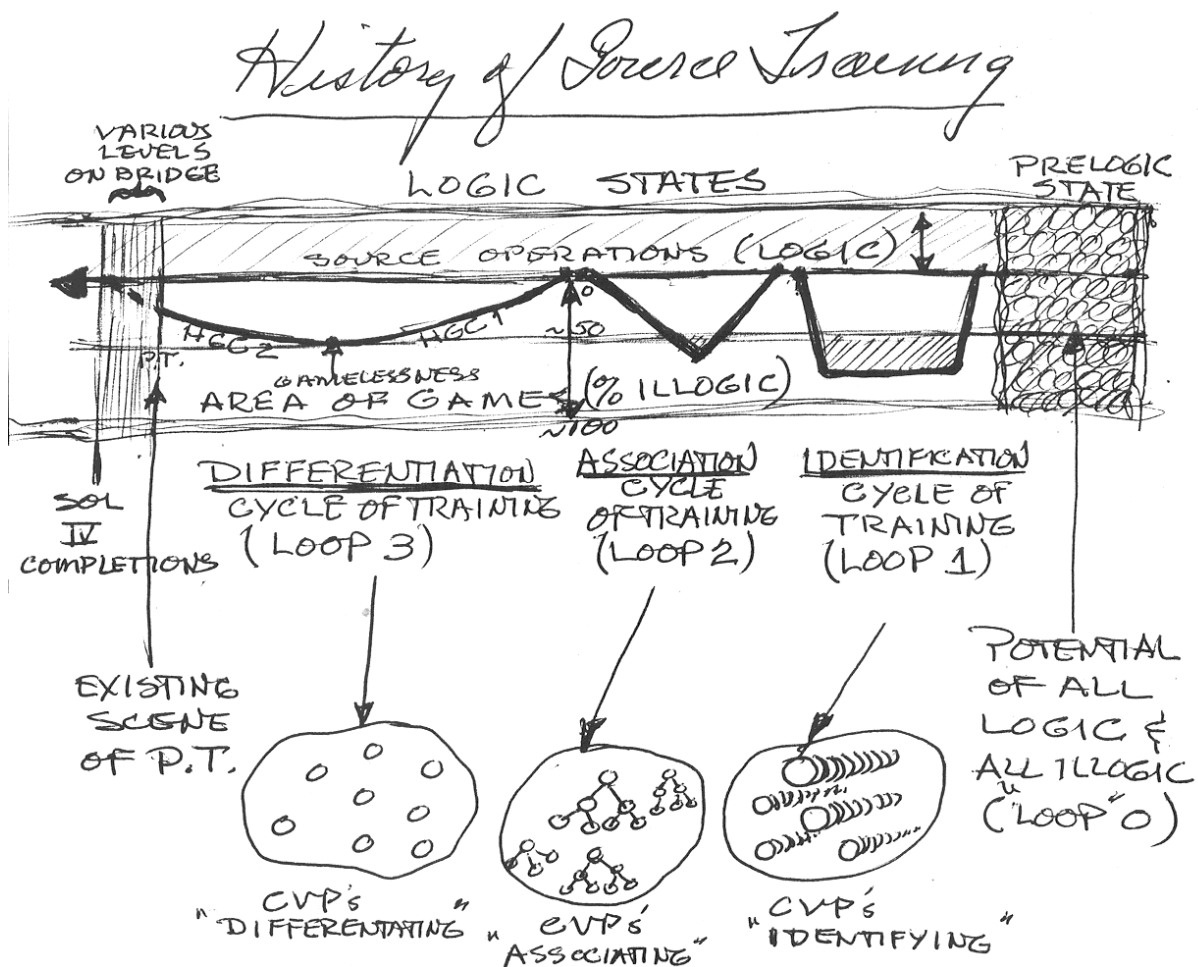 History of Source Training
VARIOUS
LEVELS
ON BRIDGE
LOGIC STATES
PRELOGIC
STATE
SOURCE OPERATIONS (LOGIC)
0
~50
HGC 2
HGC 1
P.T.
GAMELESSNESS
AREA OF GAMES
(% ILLOGIC)
~100
SOL
IV
COMPLETIONS
DIFFERENTIATION
CYCLE OF TRAINING
(LOOP 3)
ASSOCIATION
CYCLE
OF TRAINING
(LOOP 2)
IDENTIFICATION
CYCLE OF
TRAINING
(LOOP 1)
EXISTING
SCENE
OF P.T.
POTENTIAL
OF ALL
LOGIC &
ALL ILLOGIC
("LOOP" 0)
CVP's
"DIFFERENTATING"
CVP's
"ASSOCIATING"
CVP's
"IDENTIFYING"